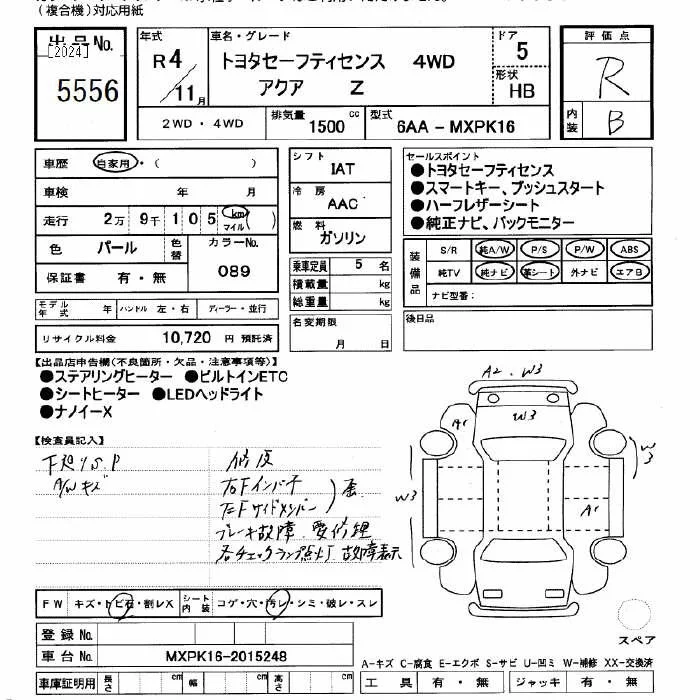 (複合機)対応用紙
出品No.
[2024]
5556
年式
R4/11月
車名・グレード
トヨタセーフティセンス 4WD
アクア Z
ドア 5
形状 HB
評価点
R
内装 B
2WD・4WD
排気量 1500 cc
型式 6AA-MXPK16
車歴 自家用・( )
車検 年 月
走行 2万 9千 105 km マイル ( )
色 パール 色替 カラーNo. 089
保証書 有・無
モデル年式 年 ハンドル 左・右 ディーラー・並行
リサイクル料金 10,720 円 預託済
シフト IAT
冷房 AAC
燃料 ガソリン
乗車定員 5 名
積載量 kg
総重量 kg
名変期限 月 日
セールスポイント
●トヨタセーフティセンス
●スマートキー、プッシュスタート
●ハーフレザーシート
●純正ナビ、バックモニター
装備品
S/R 純A/W P/S P/W ABS
純TV 純ナビ 革シート 外ナビ エアB
ナビ型番:
後日品
【出品店申告欄(不良箇所・欠品・注意事項等)】
●ステアリングヒーター ●ビルトインETC
●シートヒーター ●LEDヘッドライト
●ナノイーX
【検査員記入】
A/Wキズ
修復
右Fインパネ
左Fサイドメンバー
ブレーキ故障 要修理
各チェックランプ点灯 故障表示
A2・W3
W3
A1
W3
W3
A1
スペア
FW キズ・トビ石・割レX
シート内装 コゲ・穴・汚レ・シミ・破レ・スレ
登録No.
車台No. MXPK16-2015248
車庫証明用 長さ cm 幅 cm 高さ cm
A-キズ C-腐食 E-エクボ S-サビ U-凹ミ W-補修 XX-交換済
工具 有・無 ジャッキ 有・無